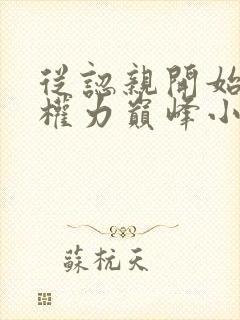 從認親開始
權力巔峰小
蘇杭天